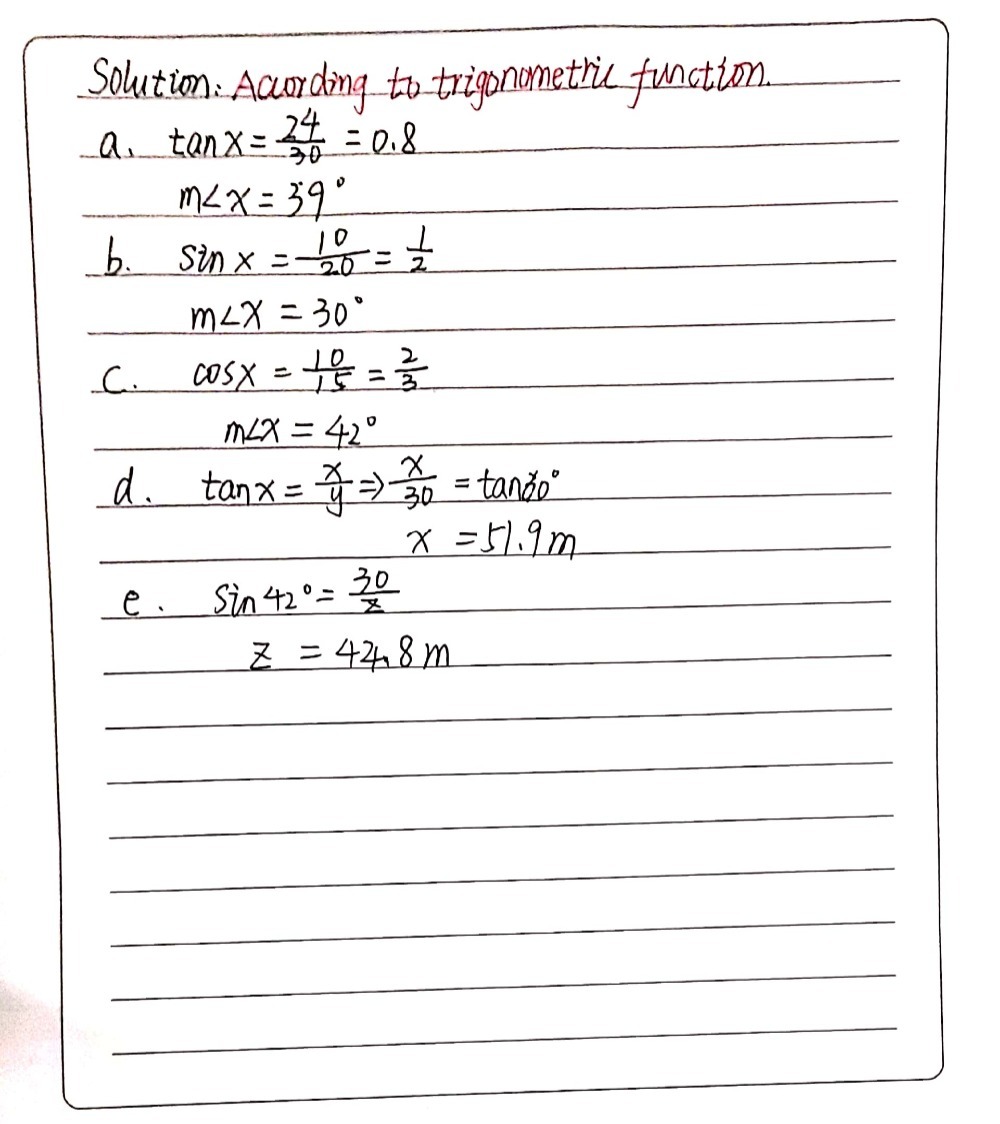 Solution: According to trigonometric function.
a. tan x = 24/30 = 0.8
m∠x = 39°
b. sin x = 10/20 = 1/2
m∠x = 30°
c. cosx = 10/15 = 2/3
m∠x = 42°
d. tan x = x/y ⇒ x/30 = tan
x = 51.9 m
e. sin 42° = 30/z
z = 44.8 m